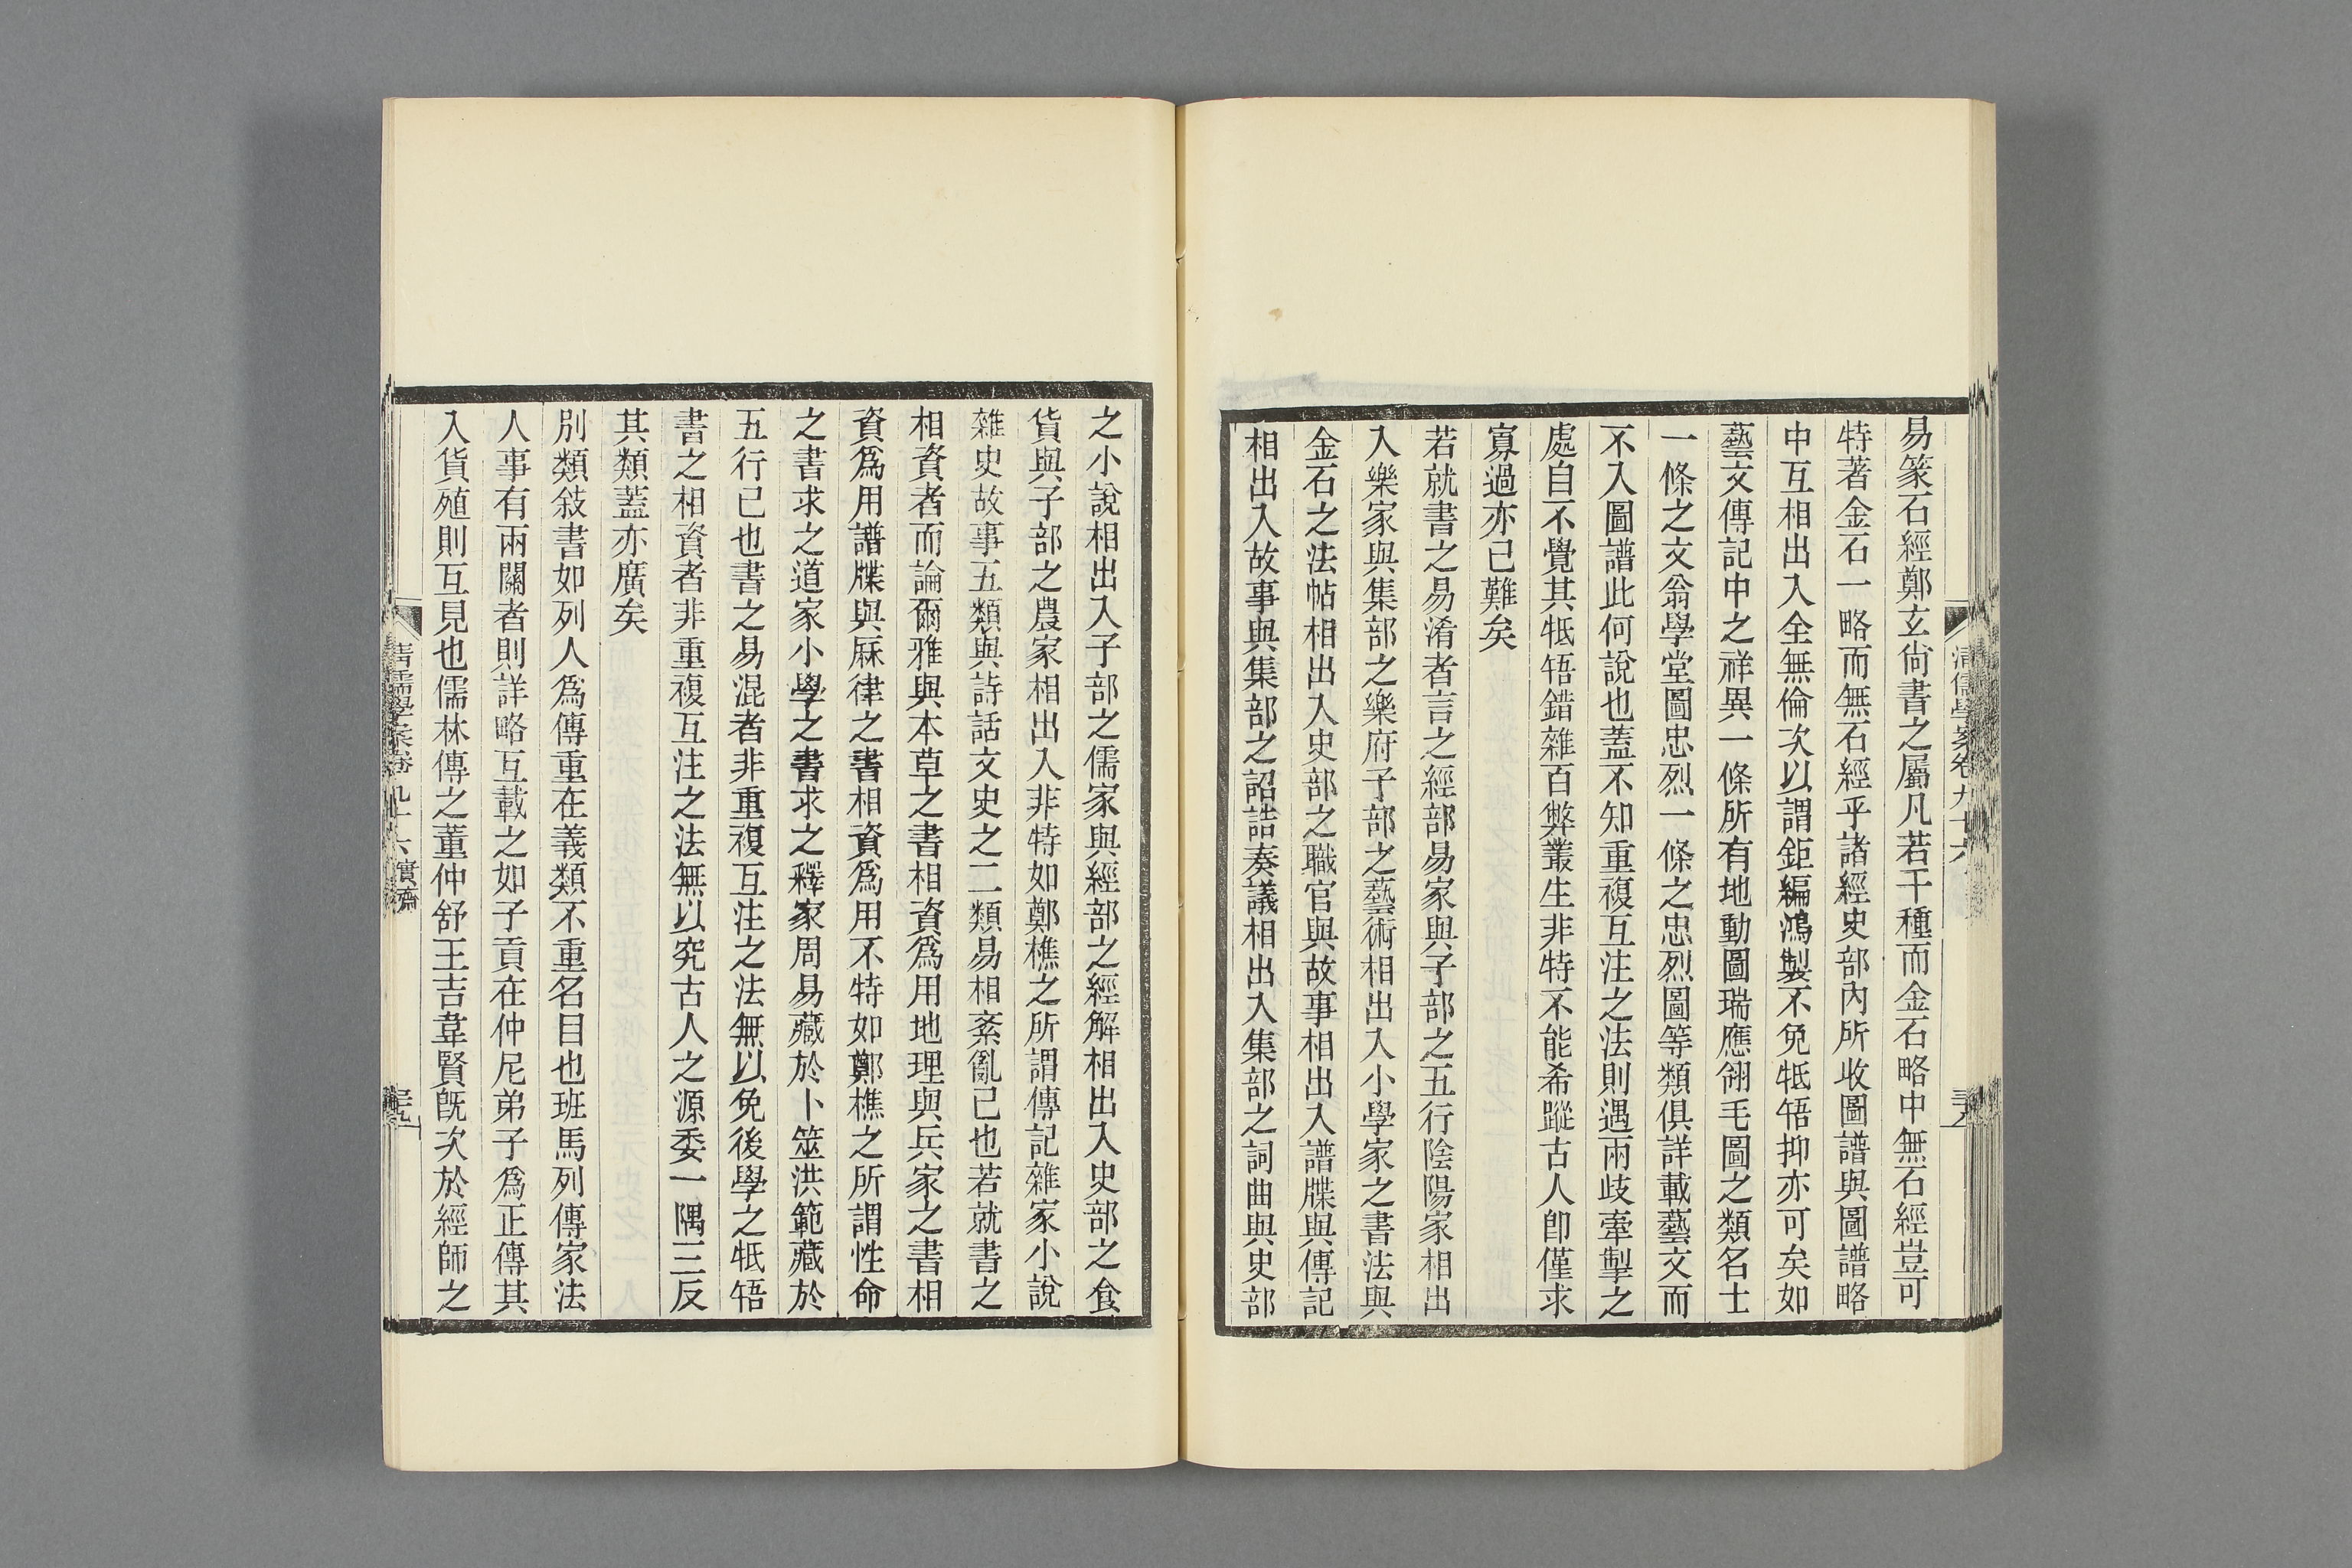 易篆石經鄭玄尙書之屬凡若干種而金石略中無石經豈可
特著金石一略而無石經乎諸經史部內所收圖譜與圖譜略
中互相出入全無倫次以謂鉅編鴻製不免牴牾抑亦可矣如
藝文傳記中之祥異一條所有地動圖瑞應翎毛圖之類名士
一條之文翁學堂圖忠烈一條之忠烈圖等類俱詳載藝文而
不入圖譜此何說也蓋不知重複互注之法則遇兩歧牽掣之
處自不覺其牴牾錯雜百弊叢生非特不能希蹤古人卽僅求
寡過亦已難矣
若就書之易淆者言之經部易家與子部之五行陰陽家相出
入樂家與集部之樂府子部之藝術相出入小學家之書法與
金石之法帖相出入史部之職官與故事相出入譜牒與傳記
相出入故事與集部之詔誥奏議相出入集部之詞曲與史部
之小說相出入子部之儒家與經部之經解相出入史部之食
貨與子部之農家相出入非特如鄭樵之所謂傳記雜家小說
雜史故事五類與詩話文史之二類易相紊亂已也若就書之
相資者而論爾雅與本草之書相資爲用地理與兵家之書相
資爲用譜牒與厤律之書相資爲用不特如鄭樵之所謂性命
之書求之道家小學之書求之釋家周易藏於卜筮洪範藏於
五行已也書之易混者非重複互注之法無以免後學之牴牾
書之相資者非重複互注之法無以究古人之源委一隅三反
其類蓋亦廣矣
別類敍書如列人爲傳重在義類不重名目也班馬列傳家法
人事有兩關者則詳略互載之如子貢在仲尼弟子爲正傳其
入貨殖則互見也儒林傳之董仲舒王吉韋賢旣次於經師之
清儒學案卷九十六實齋